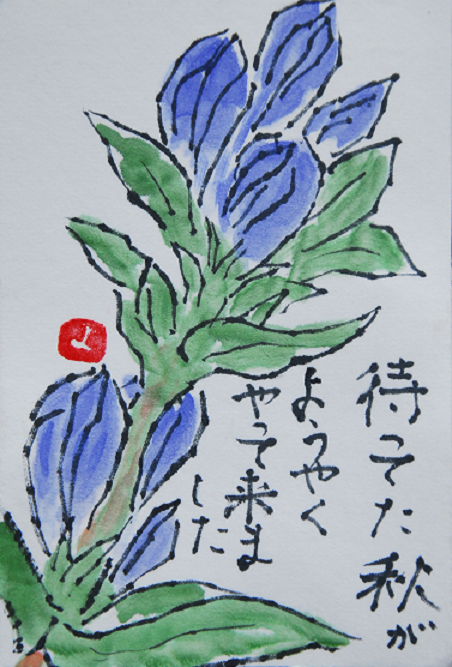 待ってた秋が
ようやく
やって来ま
した
よ